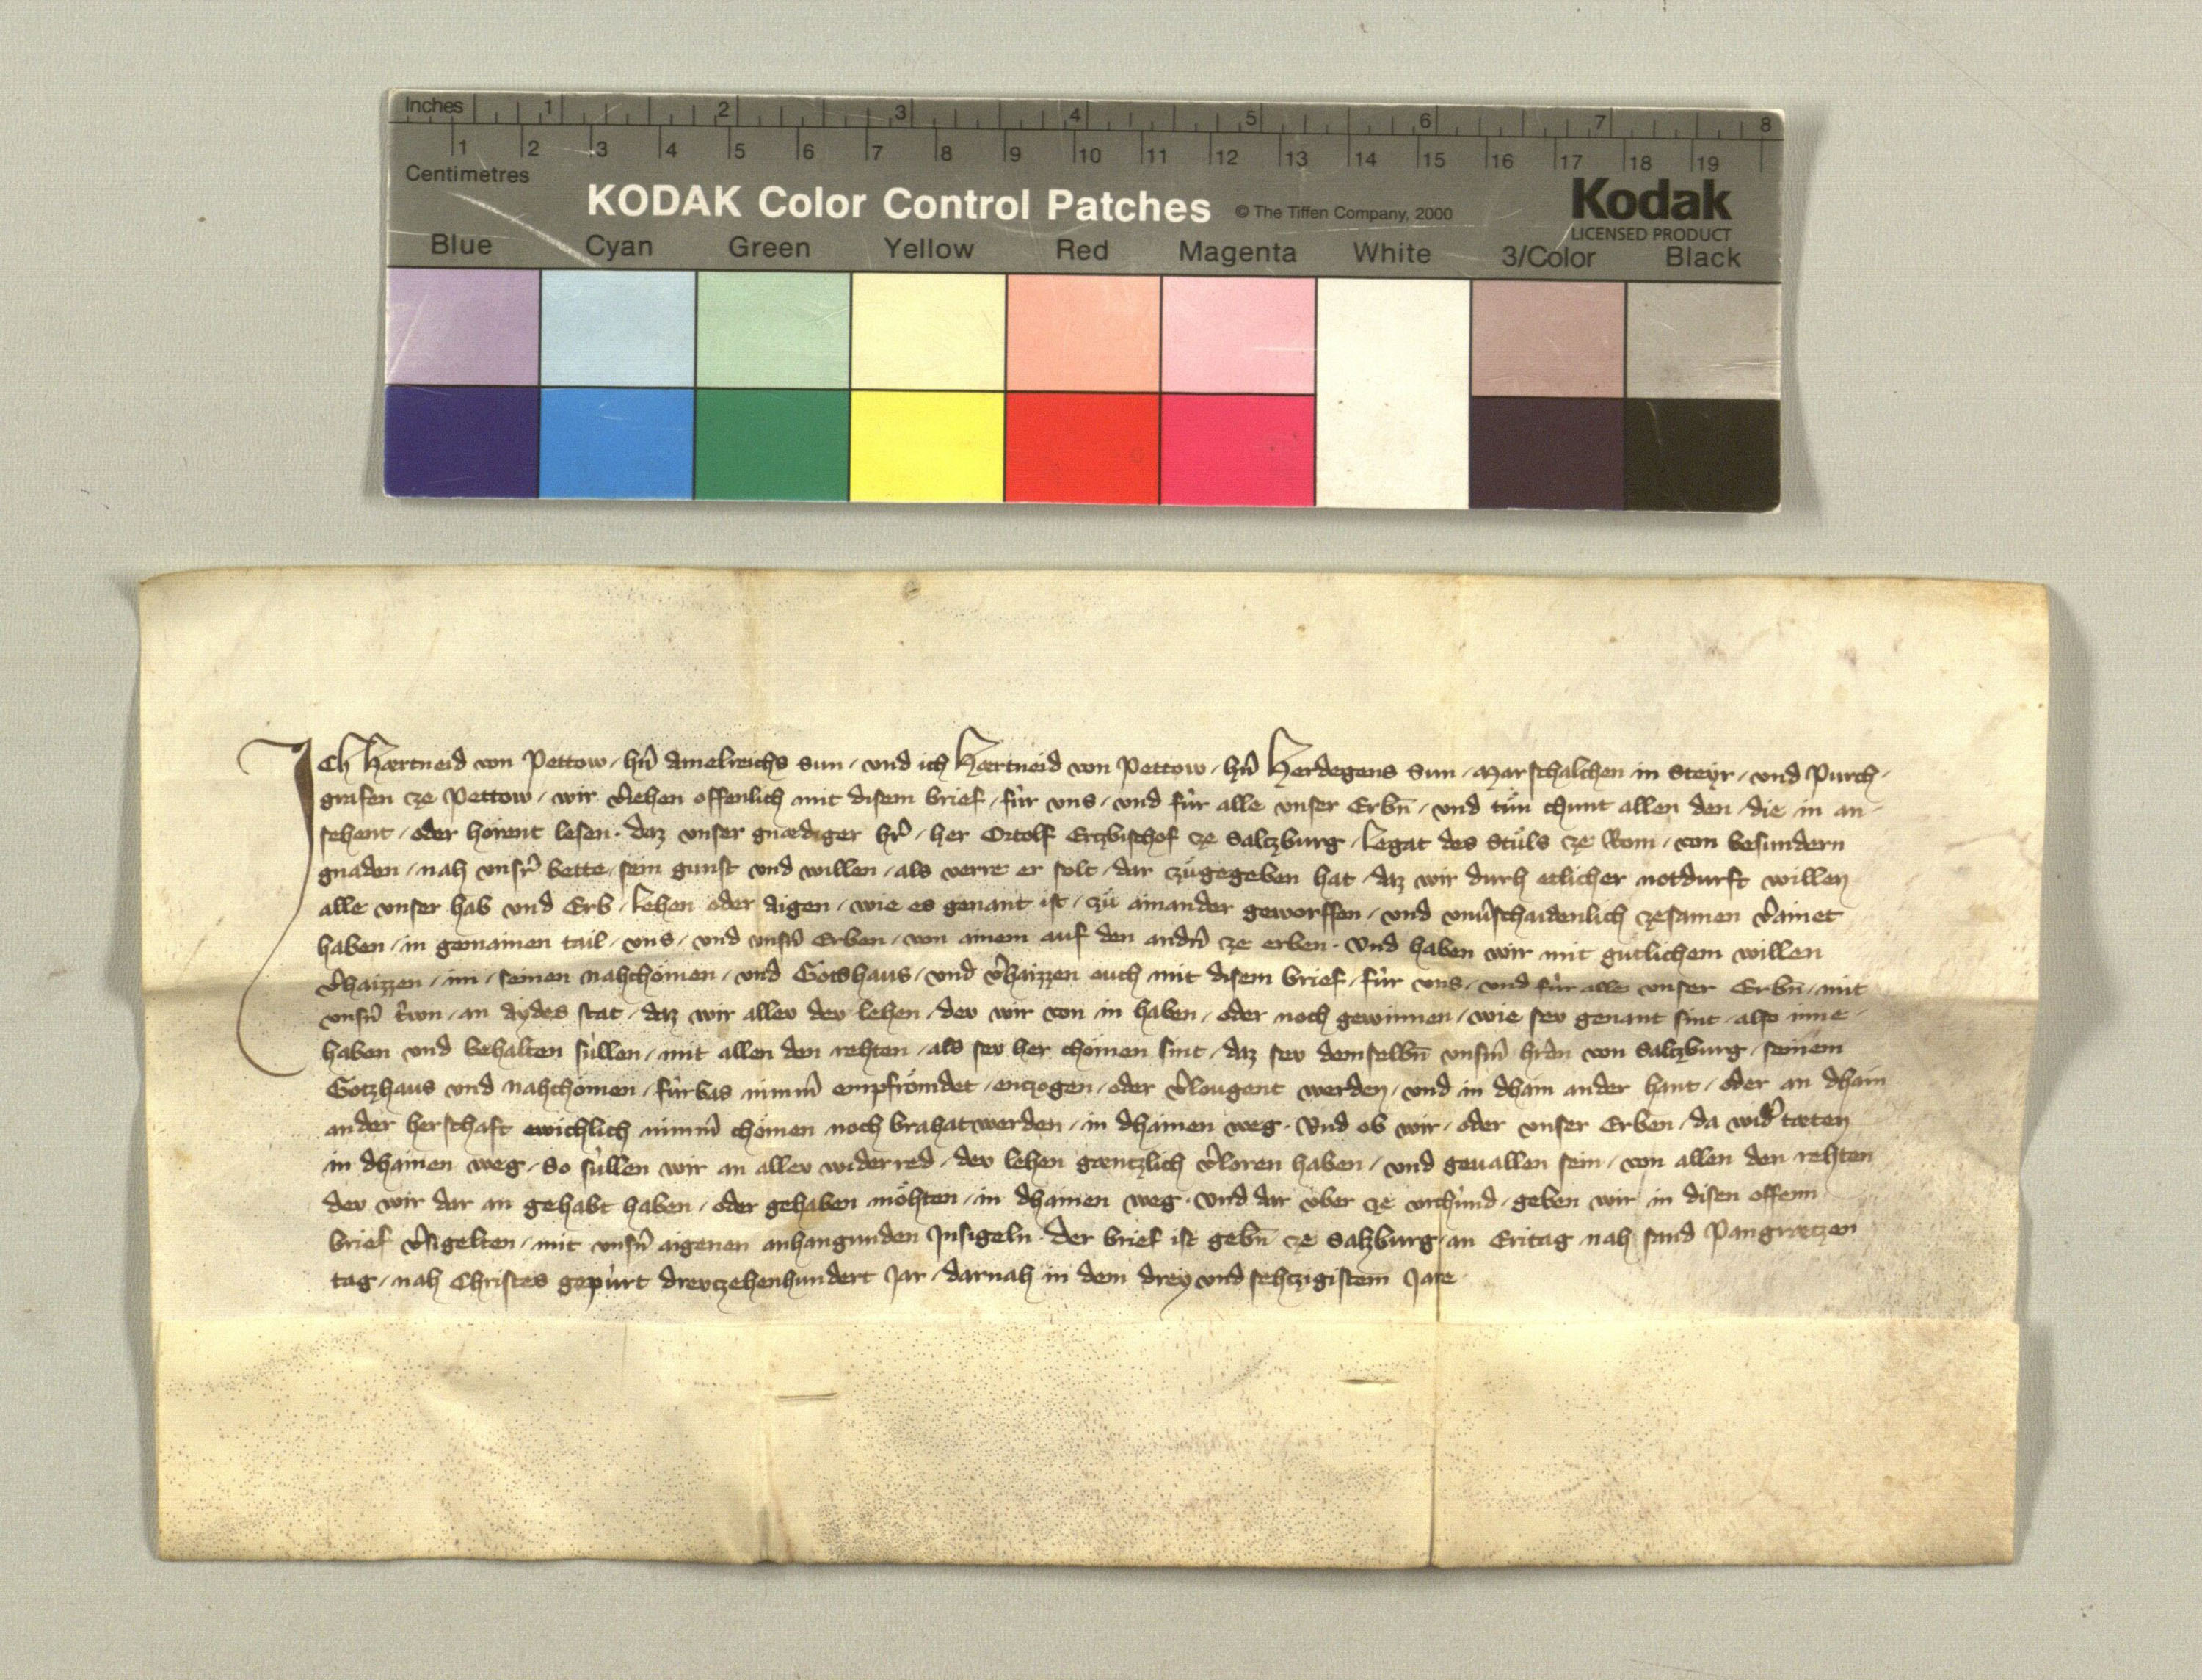 Inches 1 2 3 4 5 6 7 8
1 2 3 4 5 6 7 8 9 10 11 12 13 14 15 16 17 18 19
Centimetres
KODAK Color Control Patches © The Tiffen Company, 2000 Kodak
LICENSED PRODUCT
Blue Cyan Green Yellow Red Magenta White 3/Color Black
Ich Hærtneid von Pettow / hñ Amelreichs sun / und ich Hærtneid von Pettow / hñ Herdegens sun / Marschalchen in Steyr / und Purch-
grafen ze Pettow / wir v̂iehen offenlich mit disem brief / für uns / und für alle unser Erbn̄ / und tůn chunt allen den / die in an-
sehent / oder hörent lesen · daz unser gnædiger hr̂ / her Ortolf Ertzbischof ze Saltzburg / Legat des Stůls ze Rom / von besundern
gnaden / nah unsr̂ bette / sein gunst und willen / als verre er solt / dar zůgegeben hat / daz wir durh etlicher notdurft willen
alle unser hab und Erb / Lehen oder Aigen / wie es genant ist / zů ainander geworffen / und unv̂schaidenlich zesamen v̂ainet
haben / in gemainen tail / uns / und unsn̂ Erben / von ainem auf den andn̂ ze erben · Und haben wir mit gütlichem willen
v̂haizzen / im / seinen nahchömen / und Gotshaus / und v̂haizzen ouch mit disem brief / für uns / und für alle unser Erbn̄ / mit
unsn̂ tr̂wn / an Aydes stat / daz wir allev dev lehen / dev wir von in haben / oder noch gewinnen / wie sev genant sint / also inne-
haben und behalten süllen / mit allen den rehten / als sev her chömen sint / daz sev demselbn̄ unsm̂ hr̂n von Saltzburg / seinem
Gotzhaus und nahchömen / fürbas nimm̂ empfrömdet / entzogen / oder v̂lougent werden / und in dhain ander hant / oder an dhain
ander herschaft ewichlich nimm̂ chömen noch braht werden / in dhainen weg · Und ob wir / oder unser Erben / da wid̂ tæten
in dhainen weg / So süllen wir an allev widerred / dev lehen gæntzlich v̂loren haben / und gevallen sein / von allen den rehten
dev wir dar an gehabt haben / oder gehaben möhten / in dhainen weg · Und dar über ze urchünd / geben wir in disen offenn
brief v̂sigelten / mit unsn̂ aigenen anhangunden Insigeln · Der brief ist gebn̄ ze Salzburg / an Eritag nah sand Pangrætzen
tag / nah Christes gepürt drevtzehenhundert Jar / darnah in dem drey und sehtzigistem Jare